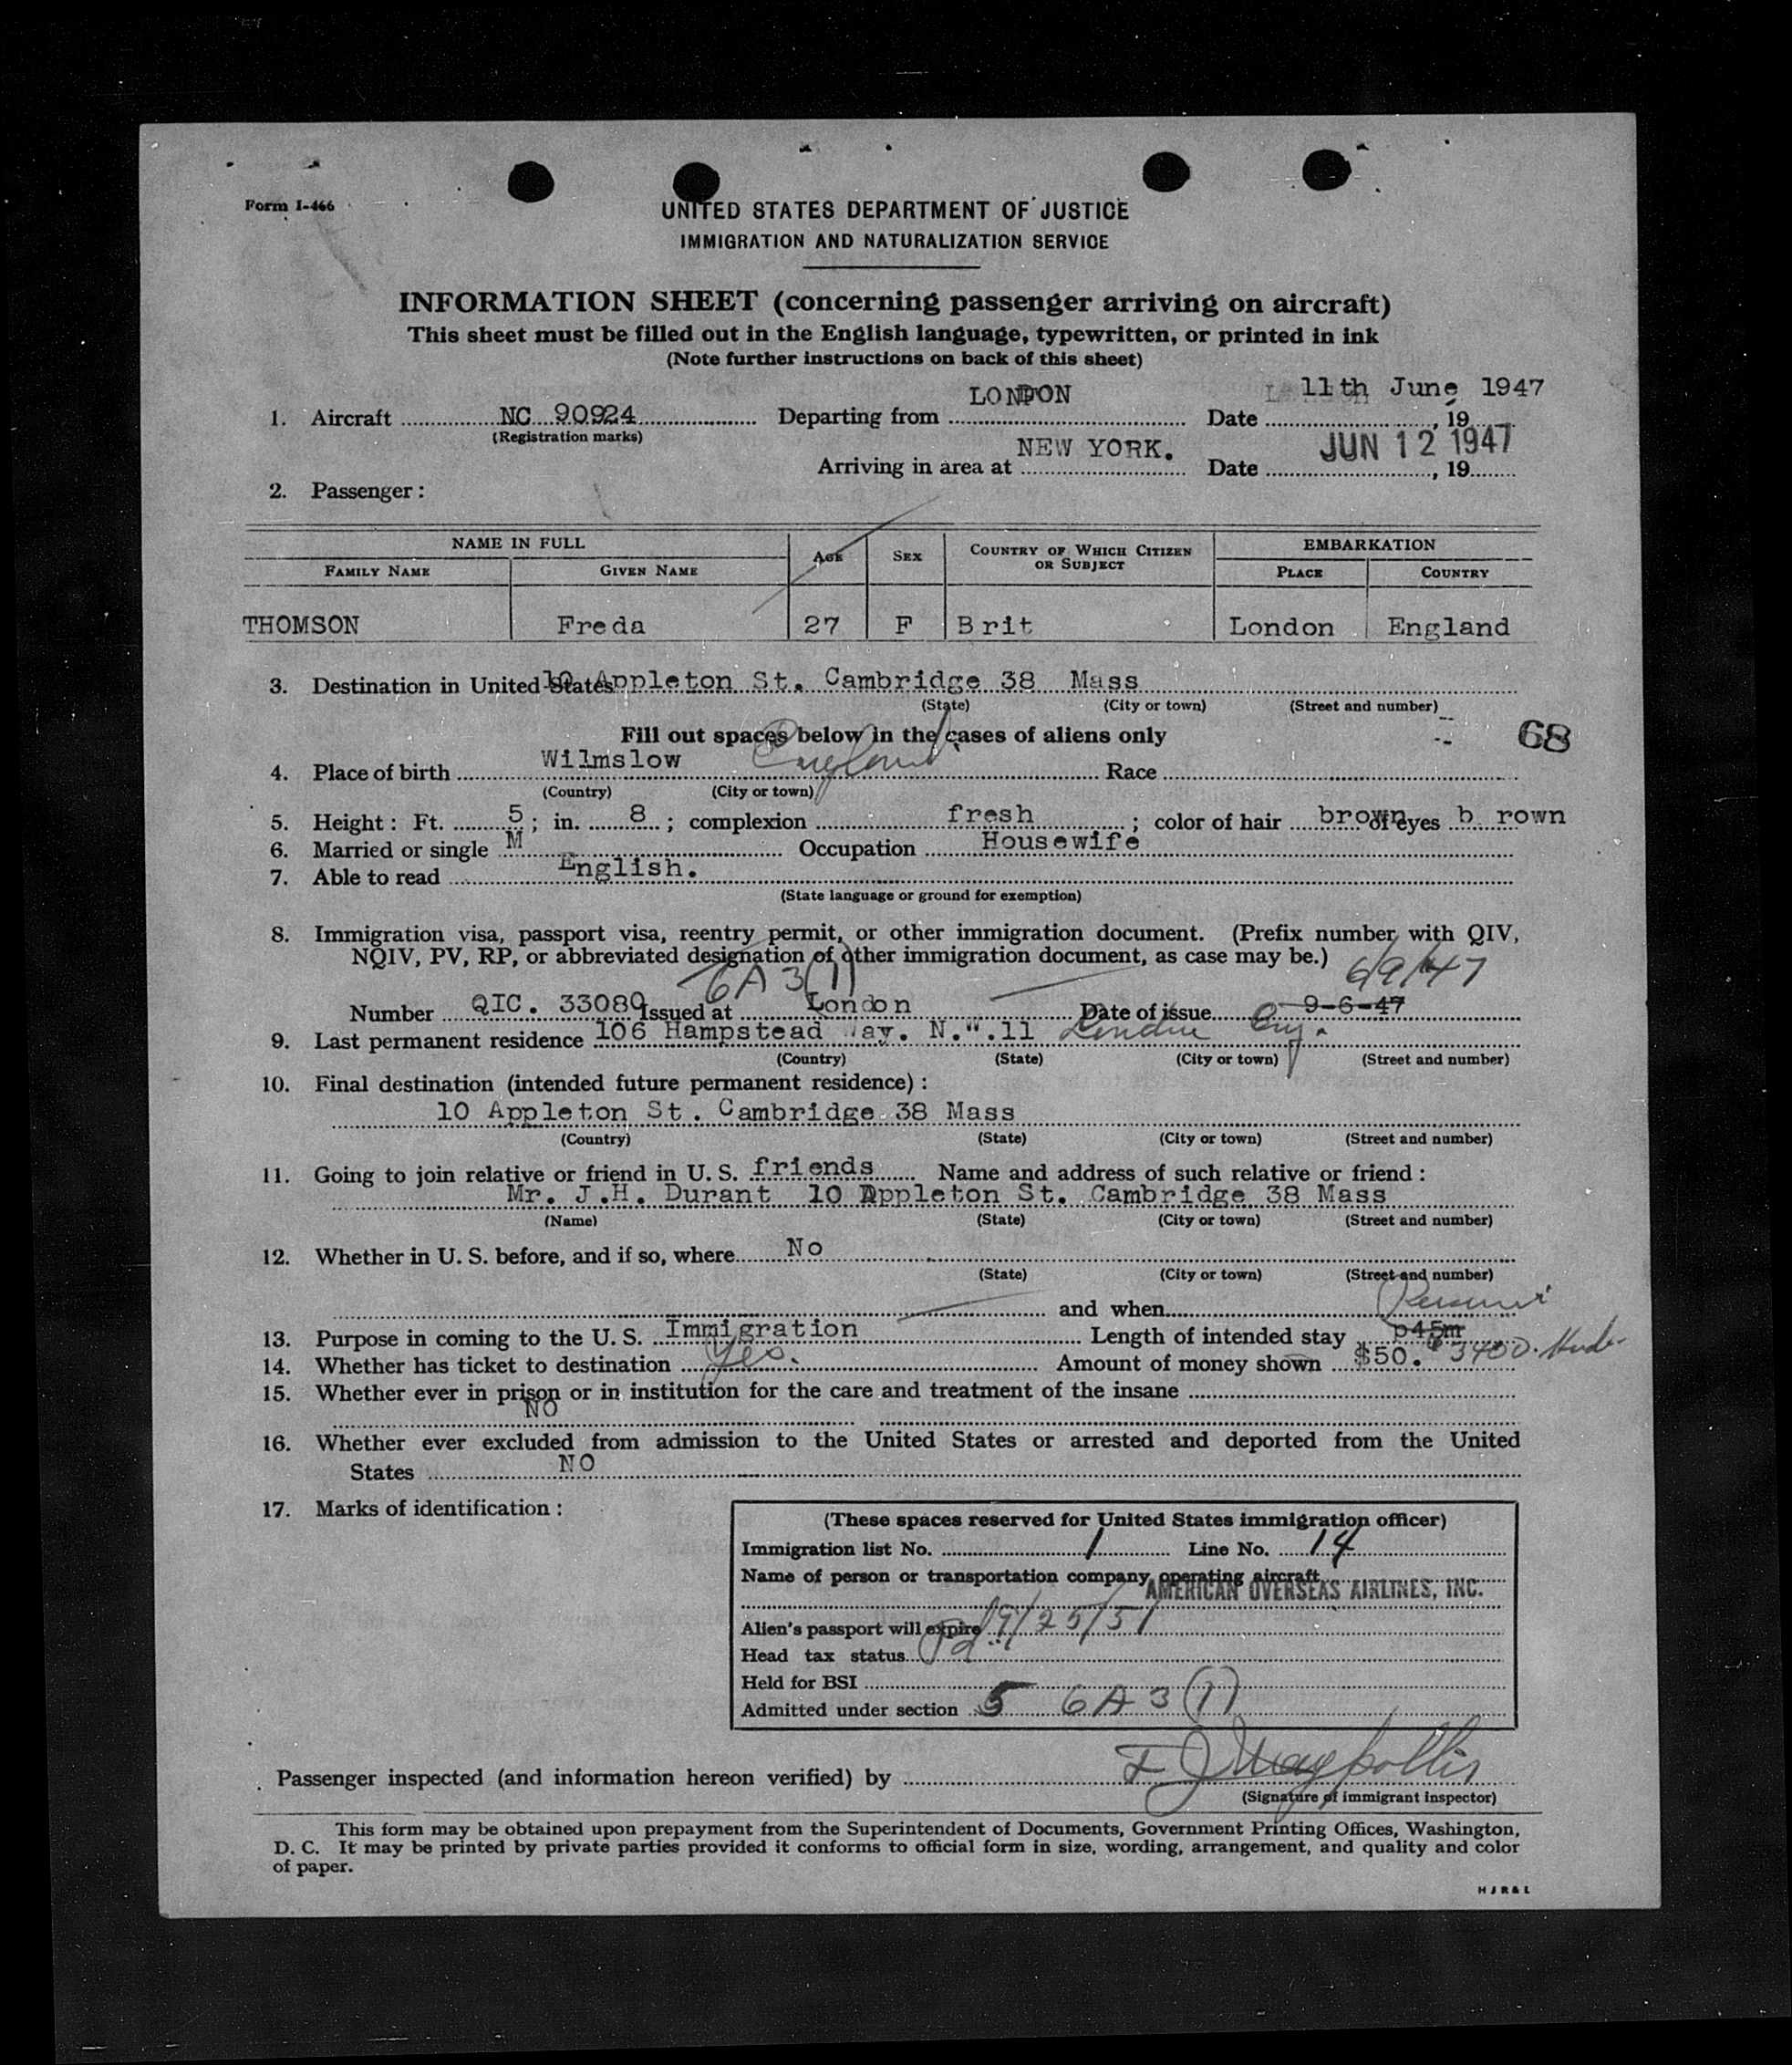 Form I-466
UNITED STATES DEPARTMENT OF JUSTICE
IMMIGRATION AND NATURALIZATION SERVICE
INFORMATION SHEET (concerning passenger arriving on aircraft)
This sheet must be filled out in the English language, typewritten, or printed in ink
(Note further instructions on back of this sheet)
1. Aircraft NC 90924 Departing from LONDON Date 11th June 1947, 19
(Registration marks)
Arriving in area at NEW YORK. Date JUN 12 1947, 19
2. Passenger:
NAME IN FULL AGE SEX COUNTRY OF WHICH CITIZEN OR SUBJECT EMBARKATION
FAMILY NAME GIVEN NAME PLACE COUNTRY
THOMSON Freda 27 F Brit London England
3. Destination in United States 10 Appleton St. Cambridge 38 Mass
(State) (City or town) (Street and number)
Fill out spaces below in the cases of aliens only 68
4. Place of birth Wilmslow England Race
(Country) (City or town)
5. Height: Ft. 5; in. 8; complexion fresh; color of hair brown of eyes b rown
6. Married or single M Occupation Housewife
7. Able to read English.
(State language or ground for exemption)
8. Immigration visa, passport visa, reentry permit, or other immigration document. (Prefix number with QIV,
NQIV, PV, RP, or abbreviated designation of other immigration document, as case may be.)
6A3(1) 6/9/47
Number QIC. 33080 Issued at London Date of issue 9-6-47
9. Last permanent residence 106 Hampstead Way. N.W.11 London Eng.
(Country) (State) (City or town) (Street and number)
10. Final destination (intended future permanent residence):
10 Appleton St. Cambridge 38 Mass
(Country) (State) (City or town) (Street and number)
11. Going to join relative or friend in U. S. friends Name and address of such relative or friend:
Mr. J.H. Durant 10 Appleton St. Cambridge 38 Mass
(Name) (State) (City or town) (Street and number)
12. Whether in U. S. before, and if so, where No
(State) (City or town) (Street and number)
and when
13. Purpose in coming to the U. S. Immigration Length of intended stay
14. Whether has ticket to destination Yes. Amount of money shown $50. $3400.
15. Whether ever in prison or in institution for the care and treatment of the insane
NO
16. Whether ever excluded from admission to the United States or arrested and deported from the United
States NO
17. Marks of identification:
(These spaces reserved for United States immigration officer)
Immigration list No. 1 Line No. 14
Name of person or transportation company operating aircraft
AMERICAN OVERSEAS AIRLINES, INC.
Alien's passport will expire 9/25/51
Head tax status Pd
Held for BSI
Admitted under section 5 6A3(1)
Passenger inspected (and information hereon verified) by
(Signature of immigrant inspector)
This form may be obtained upon prepayment from the Superintendent of Documents, Government Printing Offices, Washington,
D. C. It may be printed by private parties provided it conforms to official form in size, wording, arrangement, and quality and color
of paper.
H J R & L